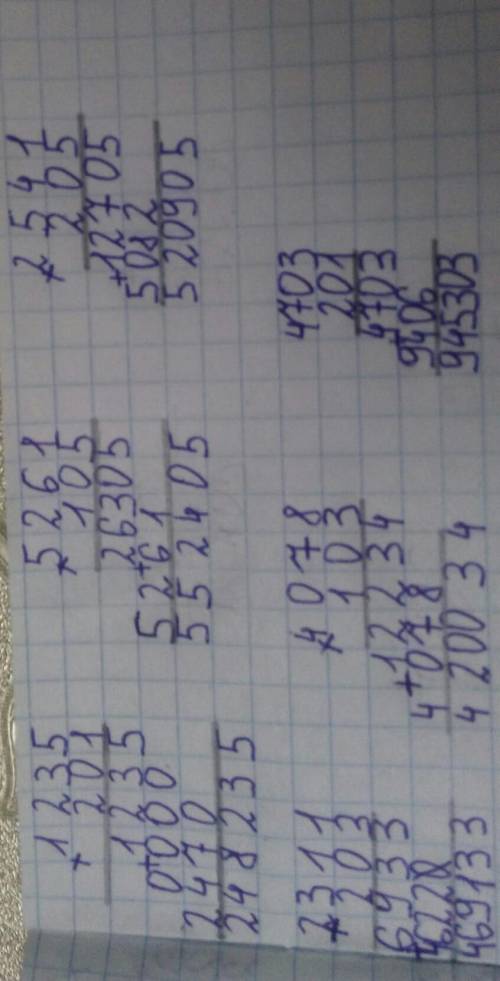 × 1235
201
1235
+ 0000
2470
248235
× 5261
105
26305
+ 5261
552405
× 2541
205
12705
+ 5082
520905
× 2311
203
6933
469133
× 4078
103
12234
+ 4078
420034
4703
201
4703
+ 9406
945303